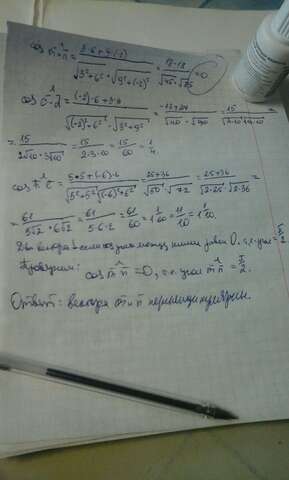 cos m^n = (3·6+9·(-2))/(√(3²+6²)·√(9²+(-2)²)) = (18-18)/(√45·√85) = 0
cos = ((-2)·6+3·9)/(√((-2)²+6²)·√(3²+9²)) = (-12+27)/(√40·√90) = 15/
= 15/(2√10·3√10) = 15/(2·3·10) = 15/60 = 1/4.
cos = (5·5+(-6)·6)/(√(5²+5²)·√((-6)²+6²)) = (25+36)/(√50·√72) = (25+36)/(√2·25·√2·36) =
= 61/(5√2·6√2) = 61/(5·6·2) = 61/60 = 1 1/60
Два вектора если угол между ними равен 0, т.е. угол = π/2
Проверим: cos m^n = 0, т.е. угол m^n = π/2.
Ответ: вектора m и n перпендикулярны.